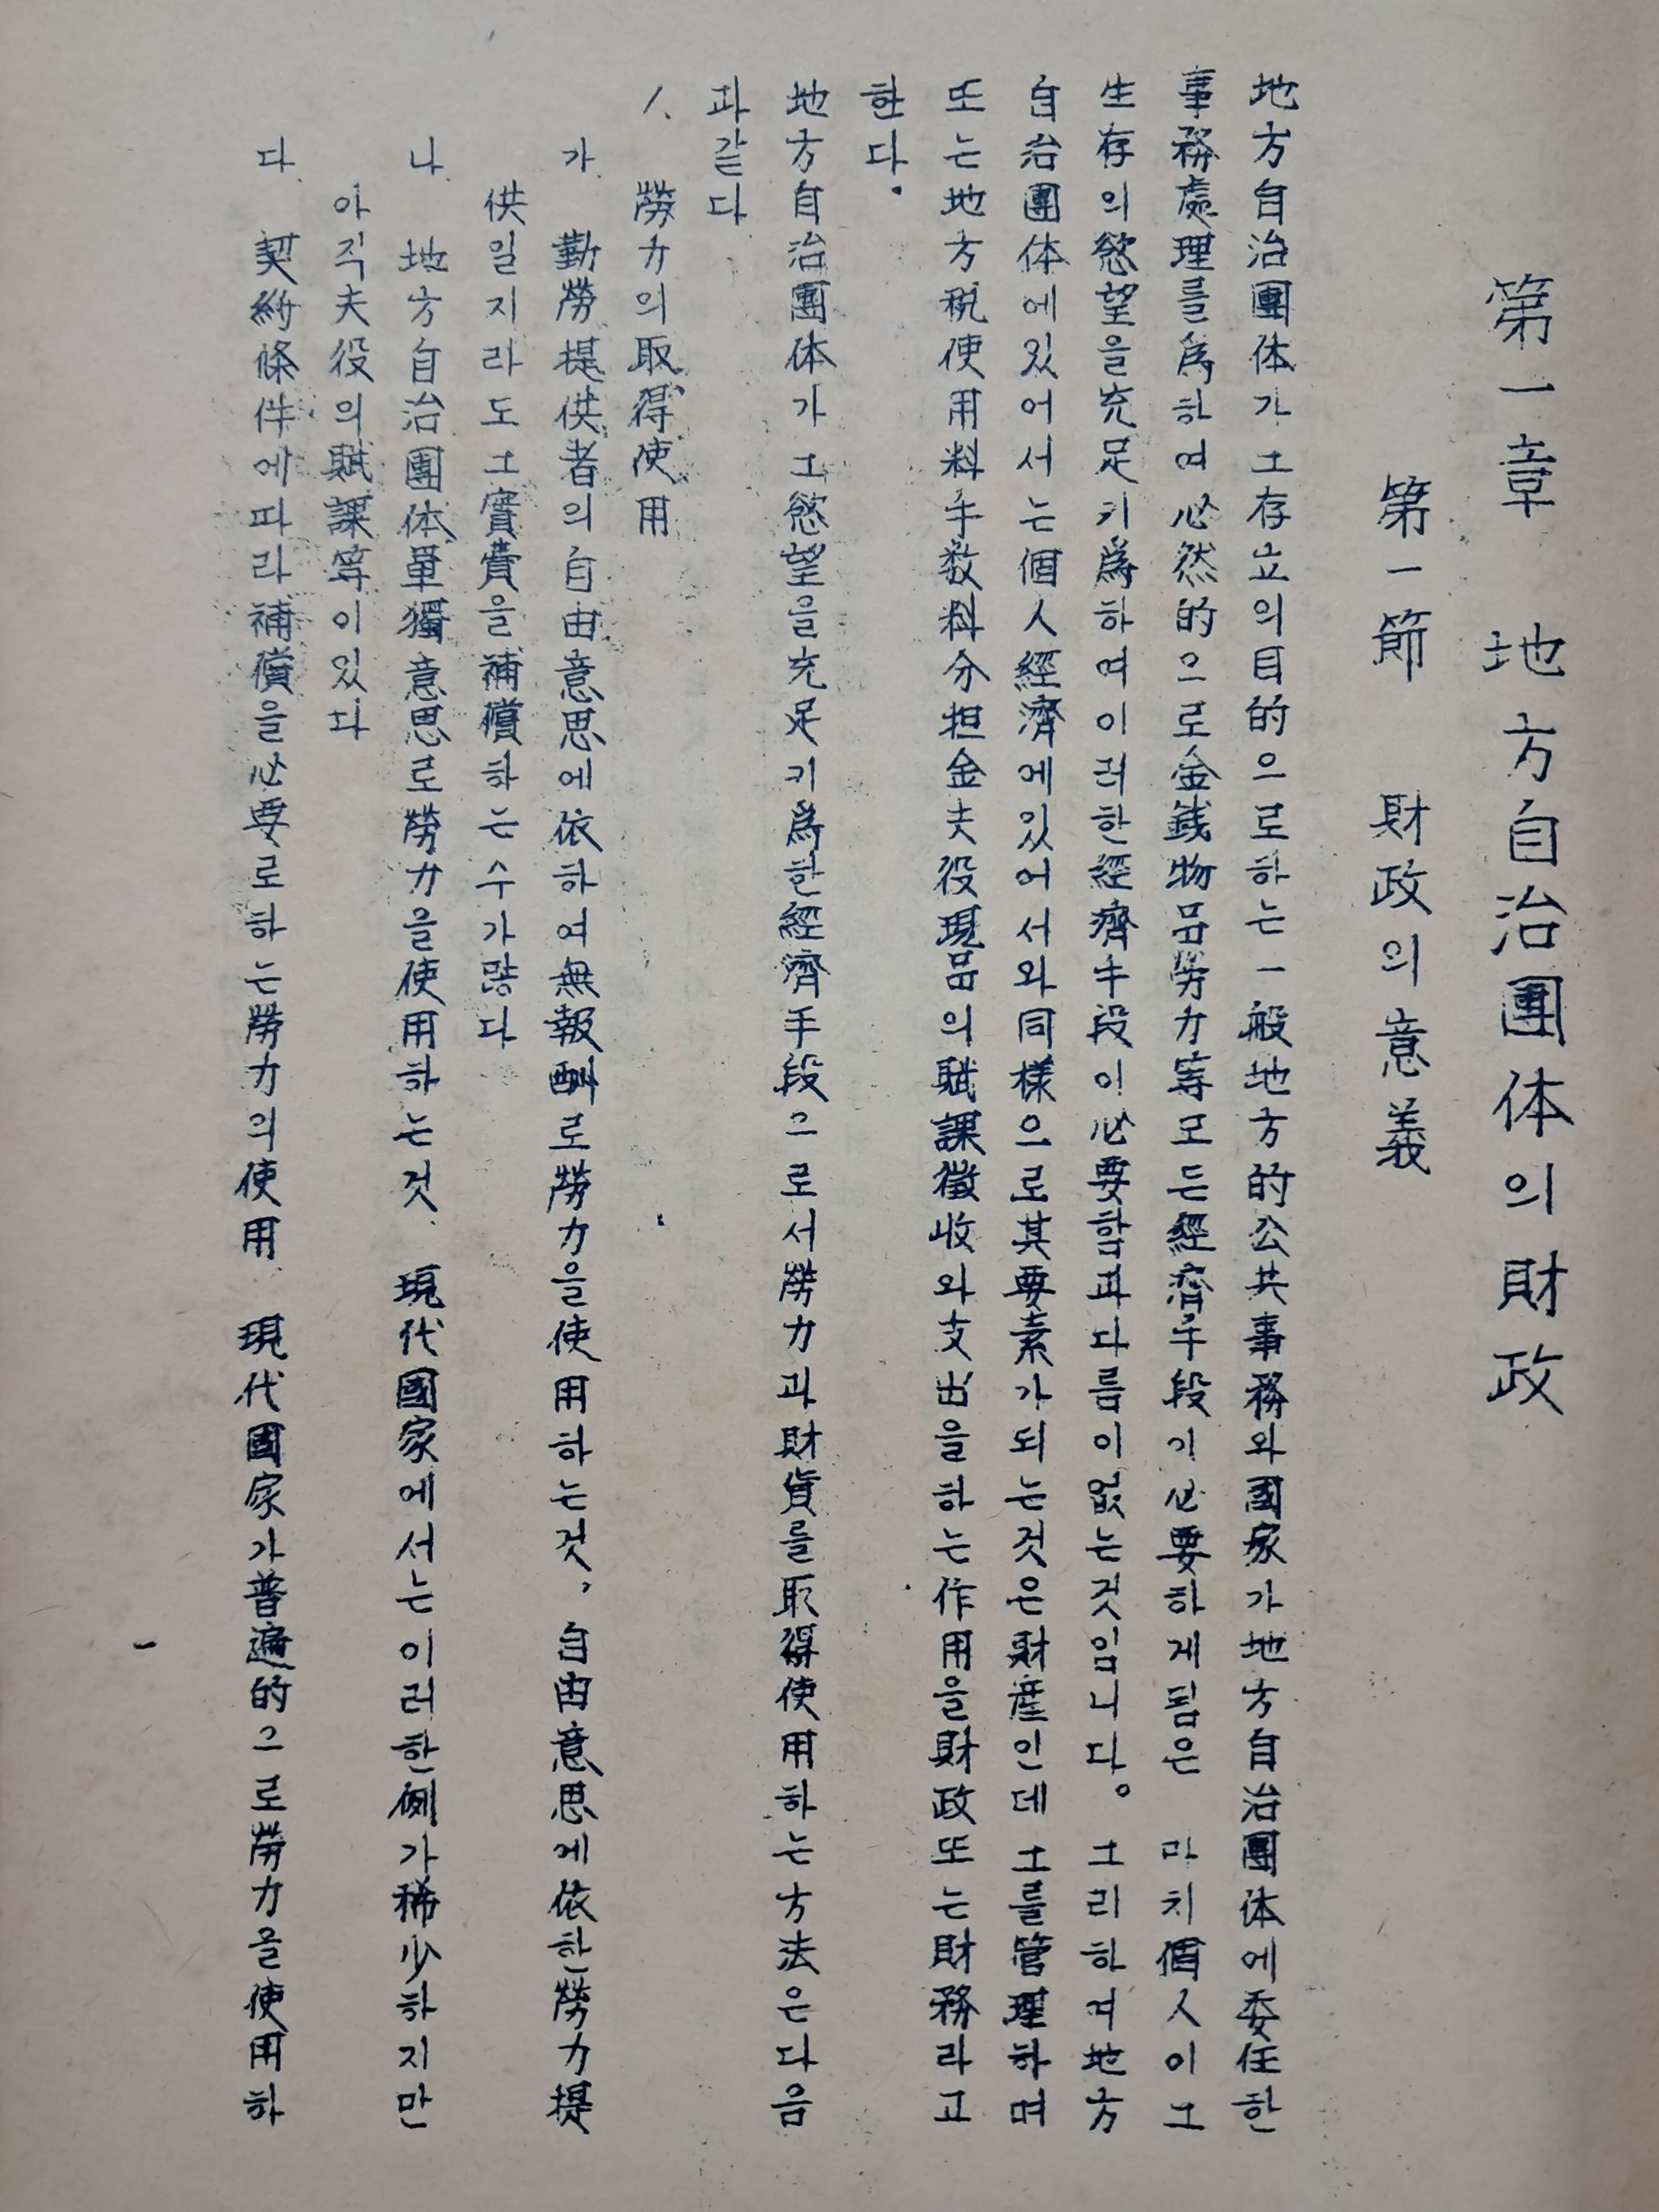 第一章 地方自治團体의財政
第一節 財政의意義
地方自治團体가그存立의目的으로하는一般地方的公共事務와國家가地方自治團体에委任한
事務處理를爲하여必然的으로金銭物品勞力等모든經濟手段이必要하게됨은 마치個人이그
生存의慾望을充足키爲하여이러한經濟手段이必要함과다름이없는것임니다。그리하여地方
自治團体에있어서는個人經濟에있어서와同樣으로其要素가되는것은財産인데그를管理하며
또는地方税使用料手数料分担金夫役現品의賦課徵收와支出을하는作用을財政또는財務라고
한다。
地方自治團体가그慾望을充足키爲한經濟手段으로서勞力과財貨를取得使用하는方法은다음
과같다
1、 勞力의取得使用
가、勤勞提供者의自由意思에依하여無報酬로勞力을使用하는것, 自由意思에依한勞力提
供일지라도그實費을補償하는수가많다
나、地方自治團体單獨意思로勞力을使用하는것、現代國家에서는이러한例가稀少하지만
아직夫役의賦課等이있다
다、契約條件에따라補償을必要로하는勞力의使用、現代國家가普遍的으로勞力을使用하